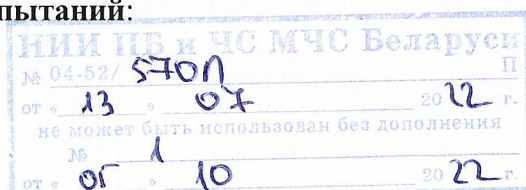 пытаний:
НИИ ПБ и ЧС МЧС Беларуси
№ 04-52/ 570П П
от « 13 » 07 2022 г.
не может быть использован без дополнения
№ 1
от « 05 » 10 2022 г.